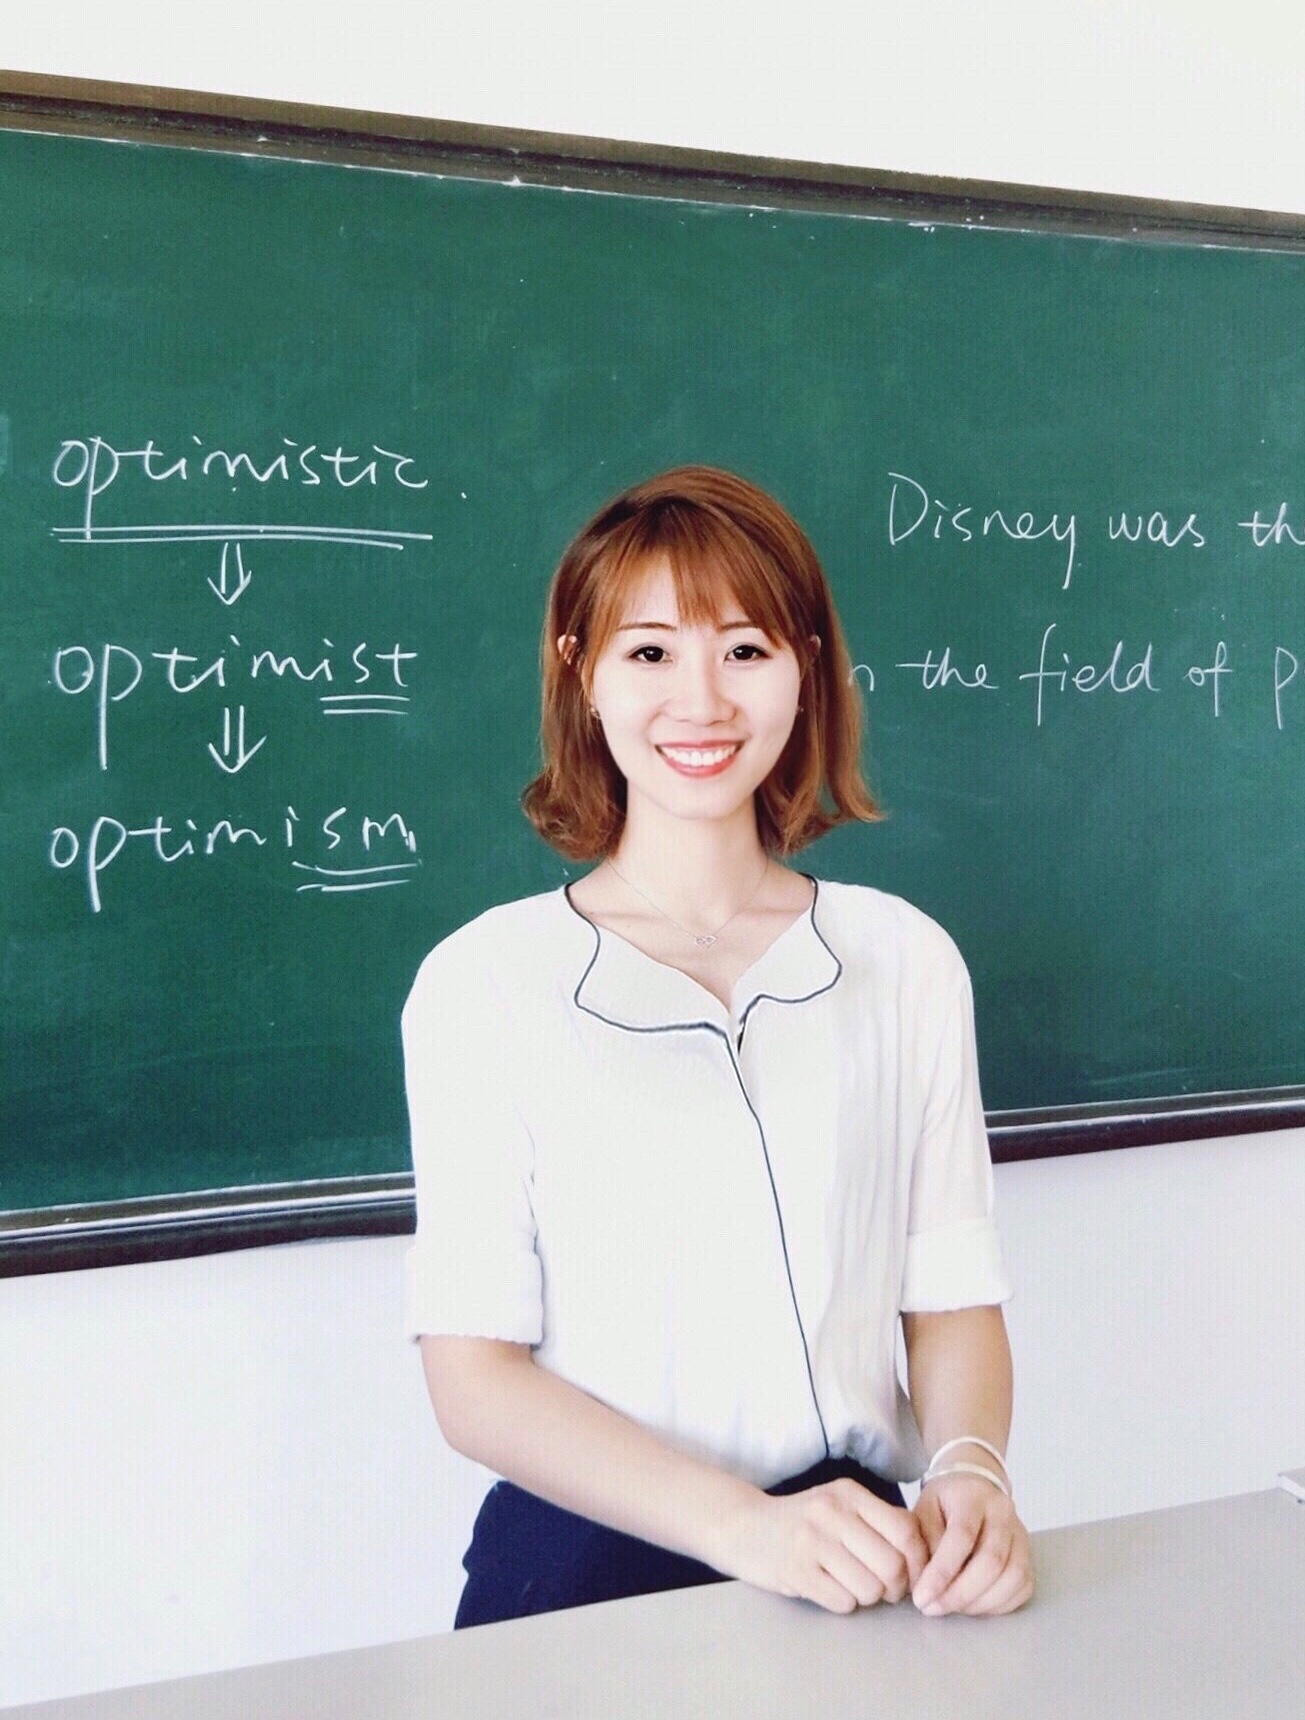 optimistic.
optimist
optimism
Disney was
the field of